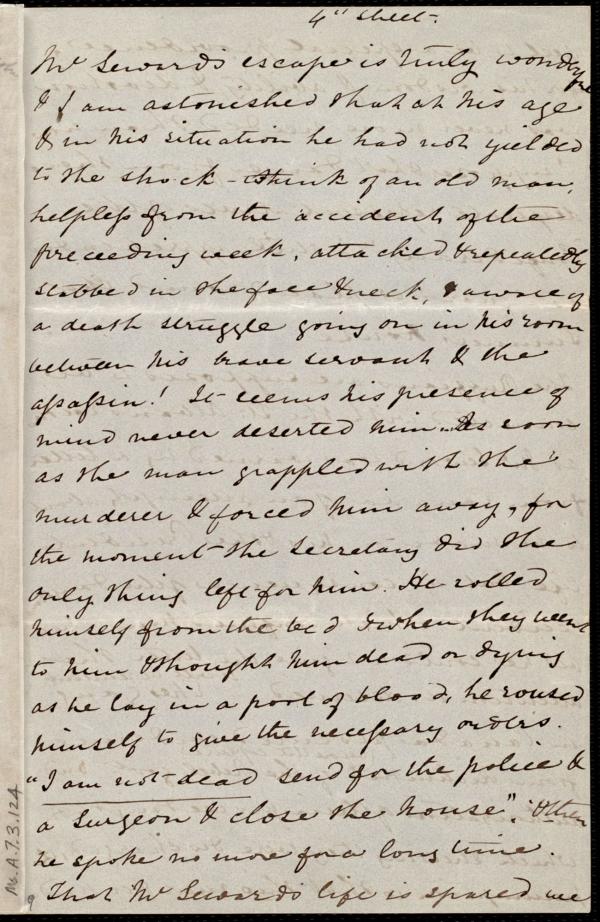 4th Sheet.
Mr Seward's escape is truly wonderful
& I am astonished that at his age
& in his situation he had not yielded
to the shock - think of an old man,
helpless from the accident of the
preceeding week, attacked & repeatedly
stabbed in the face & neck, & aware of
a death struggle going on in his room
between his brave servant & the
assassin! It seems his presence of
mind never deserted him. As soon
as the man grappled with the
murderer & forced him away, for
the moment the Secretary did the
only thing left for him. He rolled
himself from the bed & when they went
to him & thought him dead or dying
as he lay in a pool of blood, he roused
himself to give the necessary orders.
"I am not dead send for the police &
a Surgeon & close the house".
he spoke no more for a long time.
That Mr Seward's life is spared we
Ms.A.7.3.124
9